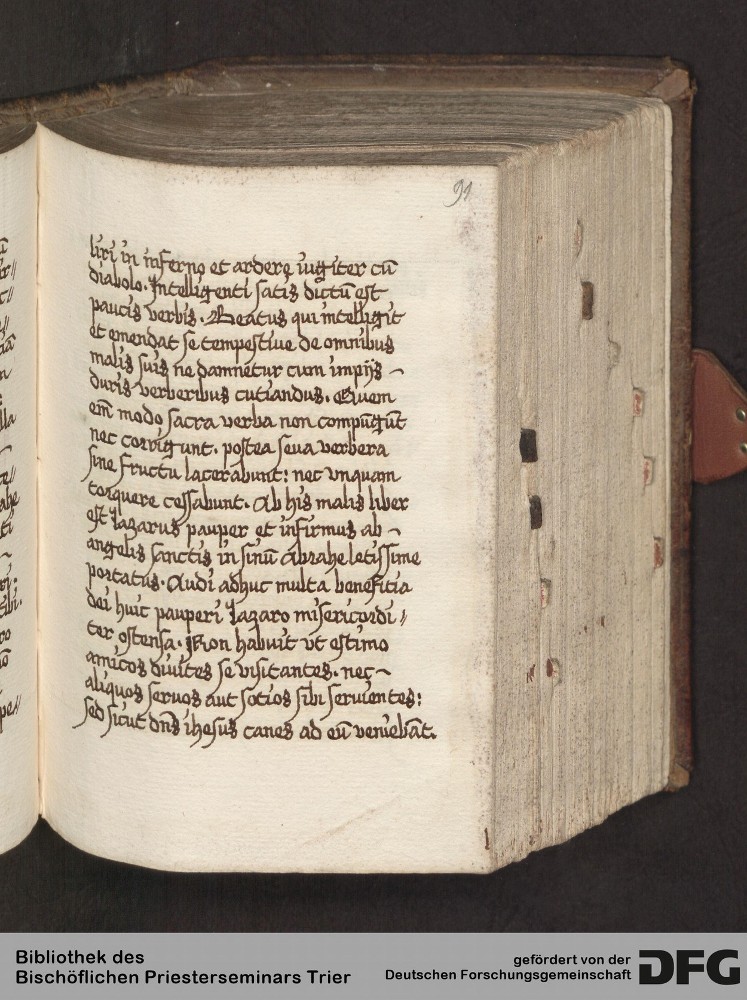 91
liri in inferno et ardere iugiter cū
diabolo. Intelligenti satis dictū est
paucis verbis. Beatus qui intelligit
et emendat se tempestiue de omnibus
malis suis ne damnetur cum impijs
duris verberibus cutiandus. Quem
em̄ modo sacra verba non compūgūt
nec corrigunt. postea seua verbera
sine fructu lacerabunt: nec vnquam
torquere cessabunt. Ab his malis liber
est lazarus pauper et infirmus ab
angelis sanctis in sinū abrahe letissime
portatus. Audi adhuc multa benefitia
dei huic pauperi lazaro misericordi//
ter ostensa. Non habuit vt estimo
amicos diuites se visitantes. nec
aliquos seruos aut sotios sibi seruientes:
sed sicut dn̄s ihesus canes ad eū veniebāt.
Bibliothek des
Bischöflichen Priesterseminars Trier
gefördert von der
Deutschen Forschungsgemeinschaft
DFG